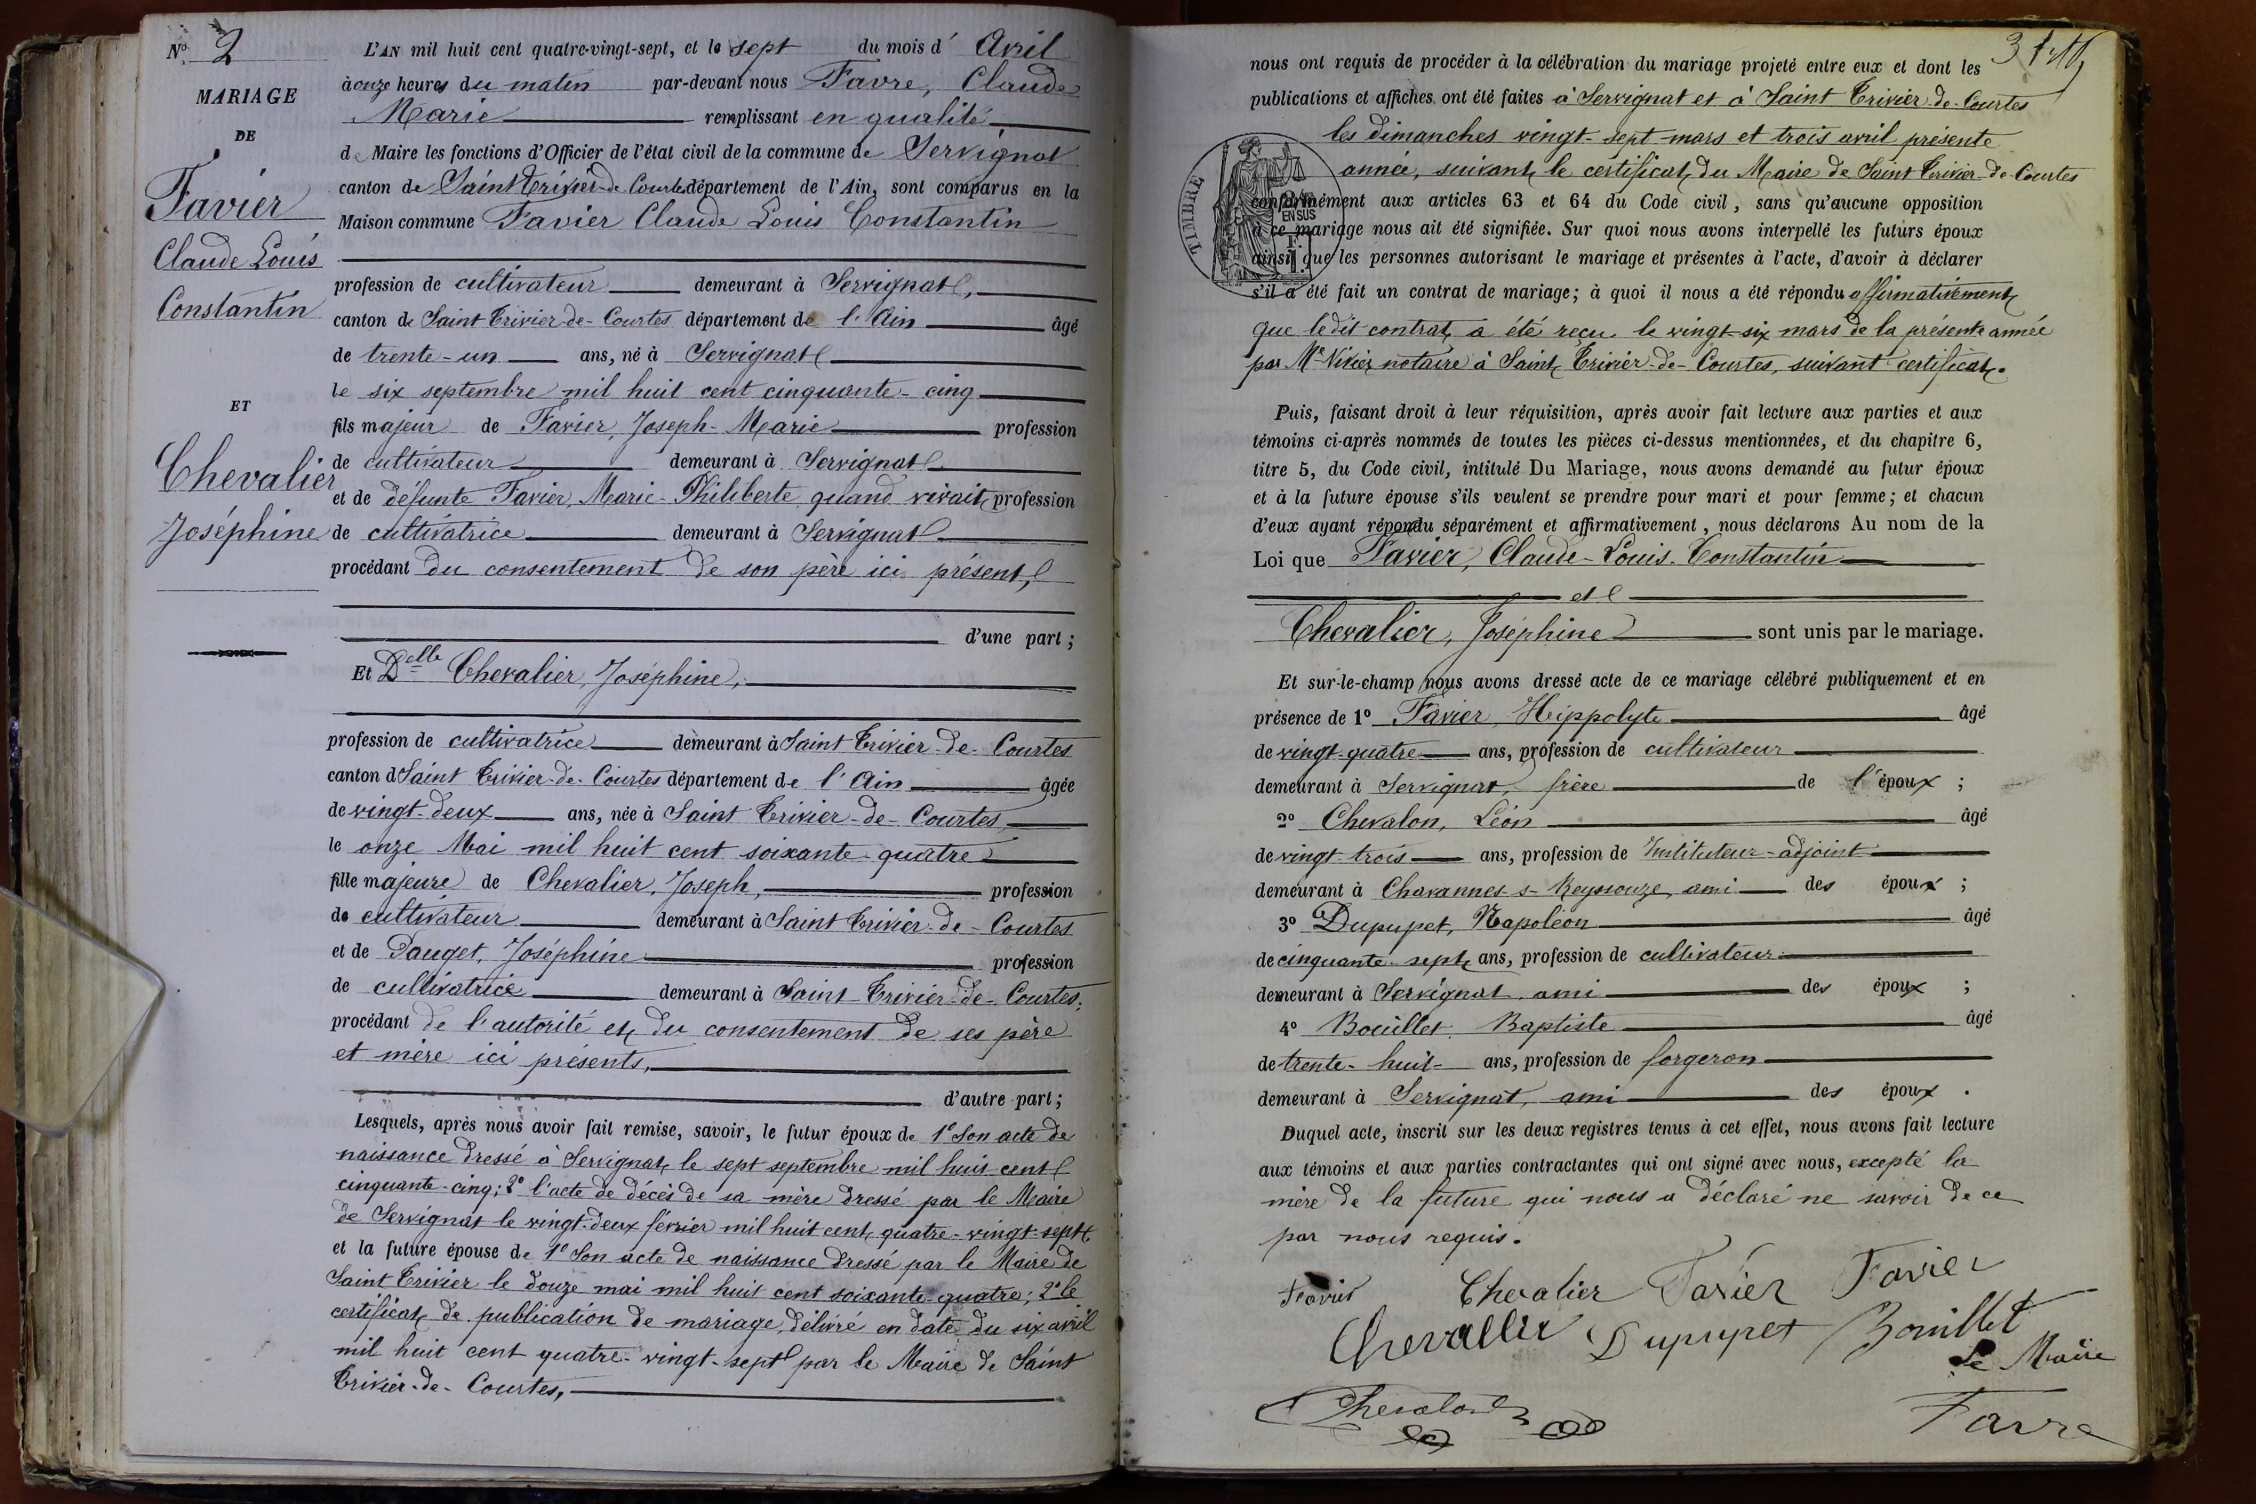 N° 2
MARIAGE
DE
Favier
Claude Louis
Constantin
ET
Chevalier
Joséphine
L'AN mil huit cent quatre-vingt-sept, et le sept du mois d' Avril
à onze heures du matin par-devant nous Favre, Claude
Marie remplissant en qualité
de Maire les fonctions d'Officier de l'état civil de la commune de Servignat
canton de Saint Trivier de Courtes département de l'Ain, sont comparus en la
Maison commune Favier Claude Louis Constantin
profession de cultivateur demeurant à Servignat,
canton de Saint Trivier-de-Courtes département de l'Ain âgé
de trente-un ans, né à Servignat
le six septembre mil huit cent cinquante-cinq
fils majeur de Favier, Joseph-Marie profession
de cultivateur demeurant à Servignat
et de défunte Favier, Marie-Philiberte quand vivait profession
de cultivatrice demeurant à Servignat
procédant du consentement de son père ici présent,
d'une part ;
Et Delle Chevalier, Joséphine,
profession de cultivatrice demeurant à Saint Trivier-de-Courtes
canton d Saint Trivier-de-Courtes département de l'Ain âgée
de vingt-deux ans, née à Saint Trivier-de-Courtes
le onze Mai mil huit cent soixante-quatre
fille majeure de Chevalier, Joseph, profession
de cultivateur demeurant à Saint Trivier-de-Courtes
et de Pauget, Joséphine profession
de cultivatrice demeurant à Saint-Trivier-de-Courtes;
procédant de l'autorité et du consentement de ses père
et mère ici présents,
d'autre part ;
Lesquels, après nous avoir fait remise, savoir, le futur époux de 1° Son acte de
naissance dressé à Servignat le sept septembre mil huit cent
cinquante-cinq; 2° l'acte de décès de sa mère dressé par le Maire
de Servignat le vingt-deux février mil huit cent quatre-vingt-sept
et la future épouse de 1° Son acte de naissance dressé par le Maire de
Saint Trivier le douze mai mil huit cent soixante-quatre; 2° le
certificat de publication de mariage, délivré en date du six avril
mil huit cent quatre-vingt-sept par le Maire de Saint
Trivier-de-Courtes,
3
nous ont requis de procéder à la célébration du mariage projeté entre eux et dont les
publications et affiches ont été faites à Servignat et à Saint Trivier-de-Courtes
les dimanches vingt-sept mars et trois avril présente
année, suivant le certificat du Maire de Saint Trivier-de-Courtes
TIMBRE
EN SUS
conformément aux articles 63 et 64 du Code civil, sans qu'aucune opposition
à ce mariage nous ait été signifiée. Sur quoi nous avons interpellé les futurs époux
ainsi que les personnes autorisant le mariage et présentes à l'acte, d'avoir à déclarer
s'il a été fait un contrat de mariage; à quoi il nous a été répondu affirmativement
que ledit contrat a été reçu le vingt-six mars de la présente année
par Me Vivier notaire à Saint Trivier-de-Courtes, suivant certificat.
Puis, faisant droit à leur réquisition, après avoir fait lecture aux parties et aux
témoins ci-après nommés de toutes les pièces ci-dessus mentionnées, et du chapitre 6,
titre 5, du Code civil, intitulé Du Mariage, nous avons demandé au futur époux
et à la future épouse s'ils veulent se prendre pour mari et pour femme; et chacun
d'eux ayant répondu séparément et affirmativement, nous déclarons Au nom de la
Loi que Favier, Claude-Louis-Constantin
et
Chevalier, Joséphine sont unis par le mariage.
Et sur-le-champ nous avons dressé acte de ce mariage célébré publiquement et en
présence de 1° Favier Hippolyte âgé
de vingt-quatre ans, profession de cultivateur
demeurant à Servignat, frère de l'époux ;
2° Chevalon, Léon âgé
de vingt-trois ans, profession de Instituteur-adjoint
demeurant à Chavannes-s-Reyssouze, ami des époux ;
3° Dupupet, Napoléon âgé
de cinquante-sept ans, profession de cultivateur
demeurant à Servignat, ami des époux ;
4° Bouillet, Baptiste âgé
de trente-huit ans, profession de forgeron
demeurant à Servignat, ami des époux .
Duquel acte, inscrit sur les deux registres tenus à cet effet, nous avons fait lecture
aux témoins et aux parties contractantes qui ont signé avec nous, excepté la
mère de la future qui nous a déclaré ne savoir de ce
par nous requis.
Favier Chevalier Favier Favier
Chevallier Dupupet Bouillet
Le Maire
Chevalon
Favre